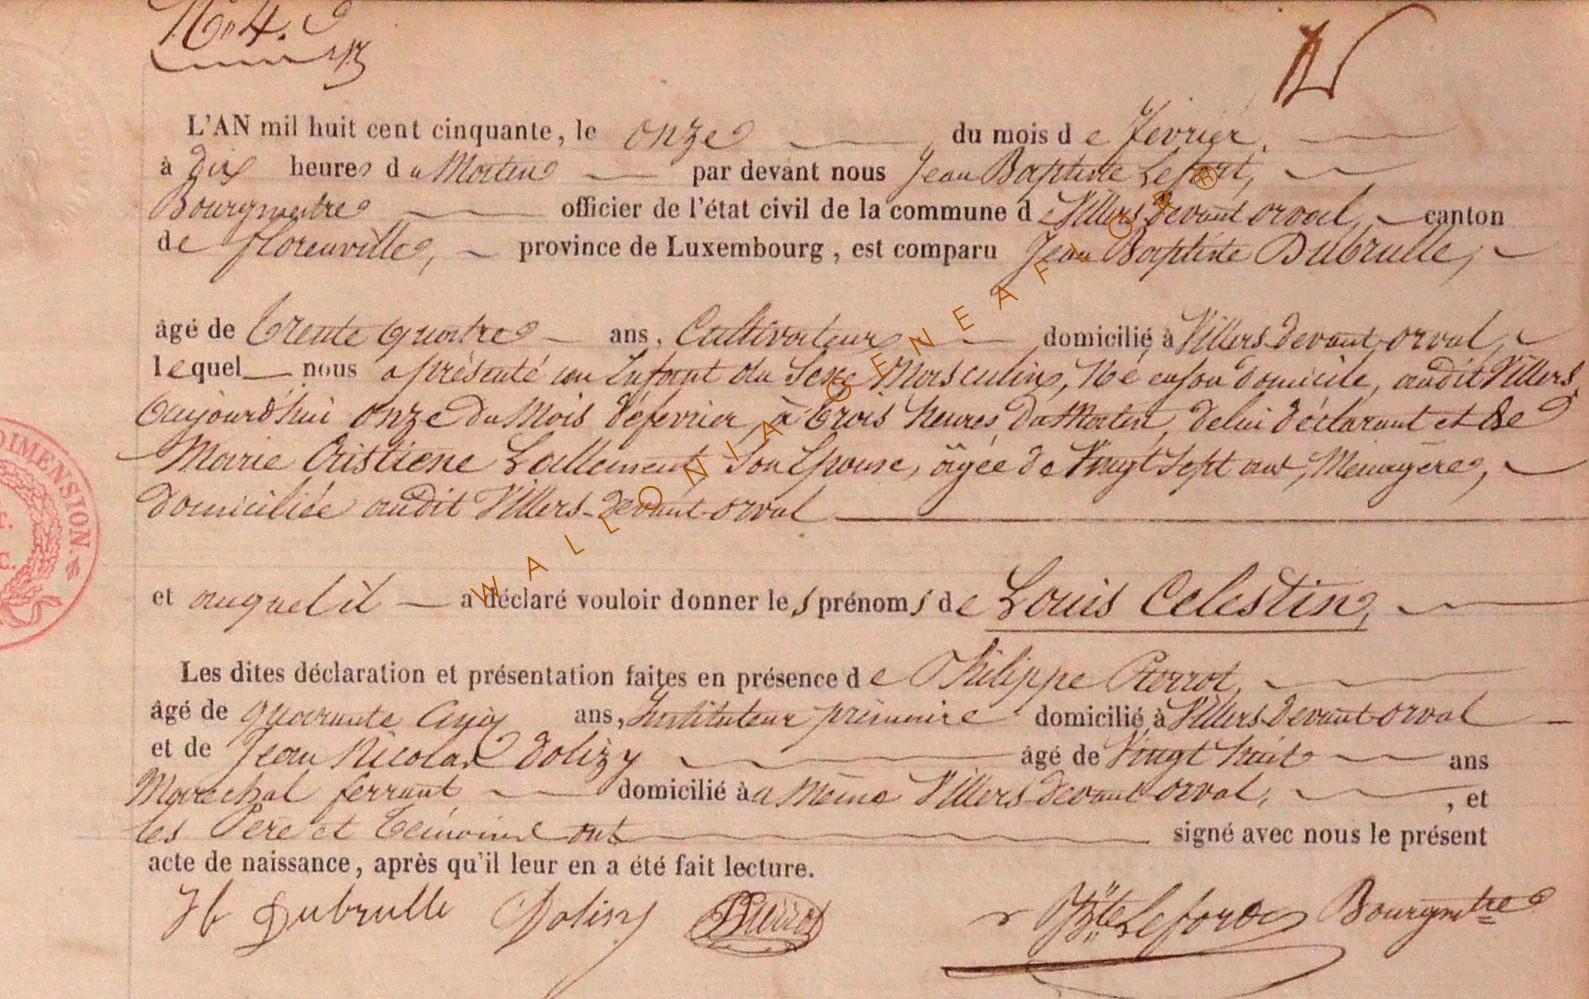 N° 4.
L'AN mil huit cent cinquante, le onze du mois de fevrier,
à dix heures du Matin par devant nous Jean Baptiste Lefort,
Bourgmetre officier de l'état civil de la commune de Villers devant orval, canton
de florenville, province de Luxembourg, est comparu Jean Baptiste Dubrulle,
âgé de trente quatre ans, Cultivateur domicilié à Villers devant orval,
lequel nous a présenté un Enfant du Sexe Masculin, Né en son domicile, audit Villers,
aujourd'hui onze du Mois de fevrier, à trois heures du Matin, de lui déclarant et de
Marie Cristiene Lallement Son Epouse, âgée de Vingt Sept ans, Menagère,
domiciliée audit Villers-devant-orval
et auquel il a déclaré vouloir donner les prénoms de Louis Celestin,
Les dites déclaration et présentation faites en présence de Philippe Pierrot,
âgé de quarante Cinq ans, Instituteur primaire domicilié à Villers devant orval
et de Jean Nicolas Dolizy âgé de Vingt huit ans
Marechal ferrant domicilié à a Même Villers devant orval, , et
les Père et temoins ont signé avec nous le présent
acte de naissance, après qu'il leur en a été fait lecture.
Dubrulle Dolizy Pierrot Bte Lefort Bourgmtre
DIMENSION.
WALLONIA-GENEAFLOR®